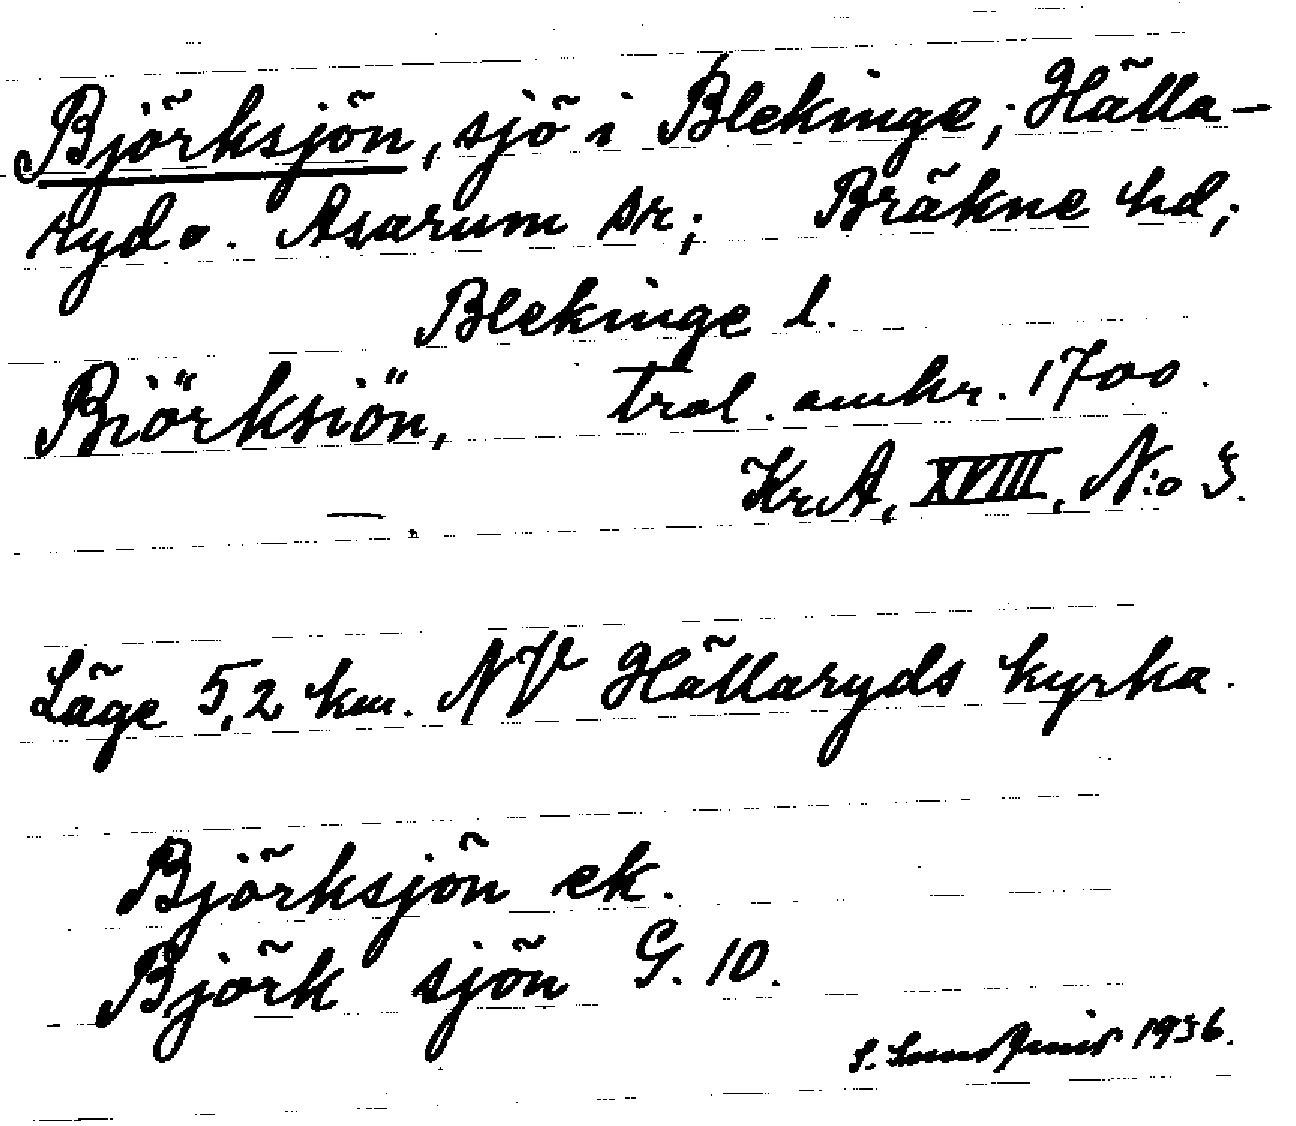 Björksjön, sjö i Blekinge; Hälla-
ryd o. Asarum sr; Bräkne hd;
Blekinge l.
Biörksiön, trol. omkr. 1700.
KrA, XVIII, N:o 3.
Läge 5,2 km. NV Hällaryds kyrka.
Björksjön ek.
Björk sjön G. 10.
S. 1936.